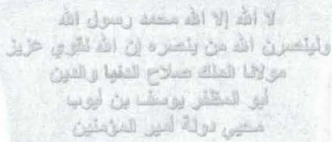 لا أله إلا الله محمد رسول الله
ولينصرن الله من ينصره إن الله لقوي عزيز
مولانا الملك صلاح الدنيا والدين
أبو المظفر يوسف بن أيوب
محيي دولة أمير المؤمنين